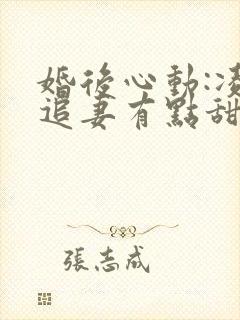 婚後心動:凌
追妻有點甜
張志成